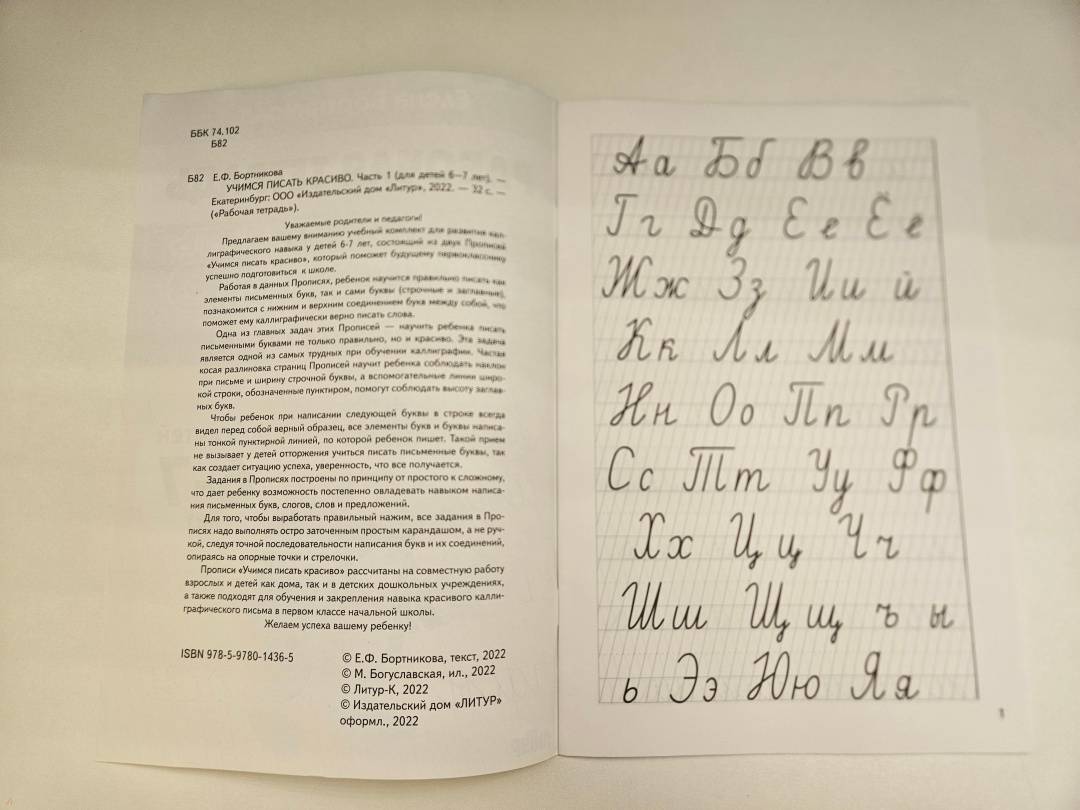 ББК 74.102
Б82
Б82 Е.Ф. Бортникова
УЧИМСЯ ПИСАТЬ КРАСИВО. Часть 1 (для детей 6–7 лет). —
Екатеринбург: ООО «Издательский дом «Литур», 2022. — 32 с. —
(«Рабочая тетрадь»).
Уважаемые родители и педагоги!
Предлагаем вашему вниманию учебный комплект для развития кал-
лиграфического навыка у детей 6-7 лет, состоящий из двух Прописей
«Учимся писать красиво», который поможет будущему первокласснику
успешно подготовиться к школе.
Работая в данных Прописях, ребенок научится правильно писать как
элементы письменных букв, так и сами буквы (строчные и заглавные),
познакомится с нижним и верхним соединением букв между собой, что
поможет ему каллиграфически верно писать слова.
Одна из главных задач этих Прописей — научить ребенка писать
письменными буквами не только правильно, но и красиво. Эта задача
является одной из самых трудных при обучении каллиграфии. Частая
косая разлиновка страниц Прописей научит ребенка соблюдать наклон
при письме и ширину строчной буквы, а вспомогательные линии широ-
кой строки, обозначенные пунктиром, помогут соблюдать высоту заглав-
ных букв.
Чтобы ребенок при написании следующей буквы в строке всегда
видел перед собой верный образец, все элементы букв и буквы написа-
ны тонкой пунктирной линией, по которой ребенок пишет. Такой прием
не вызывает у детей отторжения учиться писать письменные буквы, так
как создает ситуацию успеха, уверенность, что все получается.
Задания в Прописях построены по принципу от простого к сложному,
что дает ребенку возможность постепенно овладевать навыком написа-
ния письменных букв, слогов, слов и предложений.
Для того, чтобы выработать правильный нажим, все задания в Про-
писях надо выполнять остро заточенным простым карандашом, а не руч-
кой, следуя точной последовательности написания букв и их соединений,
опираясь на опорные точки и стрелочки.
Прописи «Учимся писать красиво» рассчитаны на совместную работу
взрослых и детей как дома, так и в детских дошкольных учреждениях,
а также подходят для обучения и закрепления навыка красивого калли-
графического письма в первом классе начальной школы.
Желаем успеха вашему ребенку!
ISBN 978-5-9780-1436-5
© Е.Ф. Бортникова, текст, 2022
© М. Богуславская, ил., 2022
© Литур-К, 2022
© Издательский дом «ЛИТУР»
оформл., 2022
Аа Бб Вв
Гг Дд Ее Ёё
Жж Зз Ии й
Кк Лл Мм
Нн Оо Пп Рр
Сс Тт Уу Фф
Хх Цц Чч
Шш Щщ ъ ы
ь Ээ Юю Яя
1